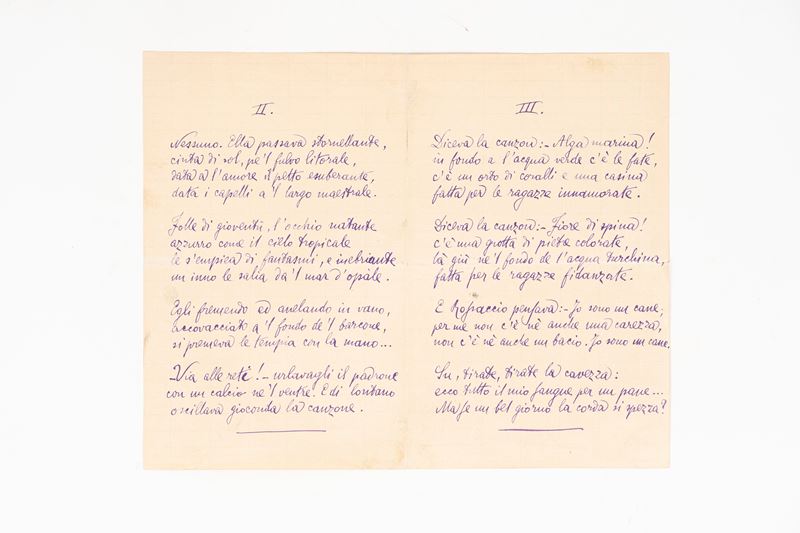 II.
Nessuno. Ella passava stornellante,
cinta di sol, pe 'l fulvo litorale,
data a l'amore il petto esuberante,
data i capelli a 'l largo maestrale.
Folle di gioventù, l'occhio natante
azzurro come il cielo tropicale
le s'empiea di fantasmi, e inebriante
un inno le salìa da 'l mar d'opale.
Egli fremendo ed anelando in vano,
accovacciato a 'l fondo de 'l barcone,
si premeva le tempia con la mano...
– Via alle reti! – urlavagli il padrone
con un calcio ne 'l ventre. E di lontano
oscillava gioconda la canzone.
III.
Diceva la canzon: – Alga marina!
in fondo a l'acqua verde c'è le fate,
c'è un orto di coralli e una casina
fatta per le ragazze innamorate.
Diceva la canzon: – Fiore di spina!
c'è una grotta di pietre colorate,
là giù ne 'l fondo de l'acqua turchina,
fatta per le ragazze fidanzate.
E Rofaccio pensava: – Io sono un cane;
per me non c'è nè anche una carezza,
non c'è nè anche un bacio. Io sono un cane.
Su, tirate, tirate la cavezza:
ecco tutto il mio sangue per un pane...
Ma se un bel giorno la corda si spezza?